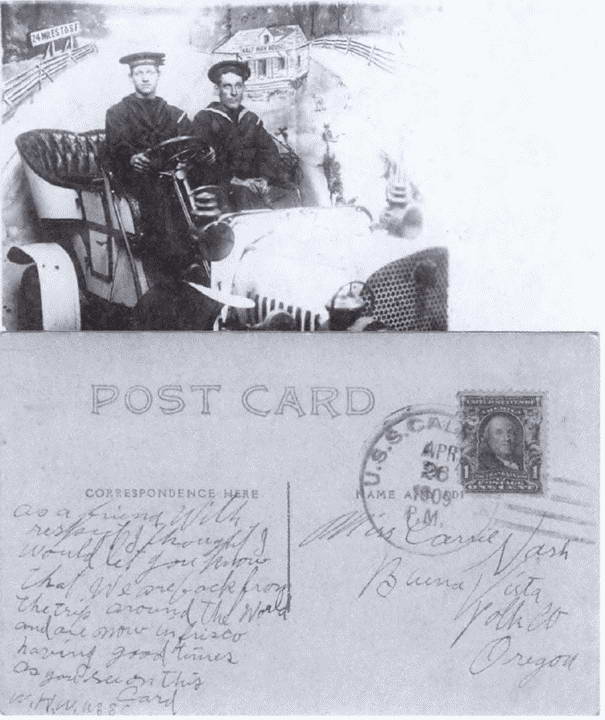 24 MILES TO S.F.
HALF WAY HOUSE
POST CARD
U.S.S. CAL
APR
26
1909
P.M.
1 1
CORRESPONDENCE HERE
NAME A
as a friend With
respect I thought I
would let you know
that We are back from
the trip around the World
and are now in frisco
having good times
as you see on this
Card
Miss Carrie Nash
Buena Vista
Polk Co
Oregon